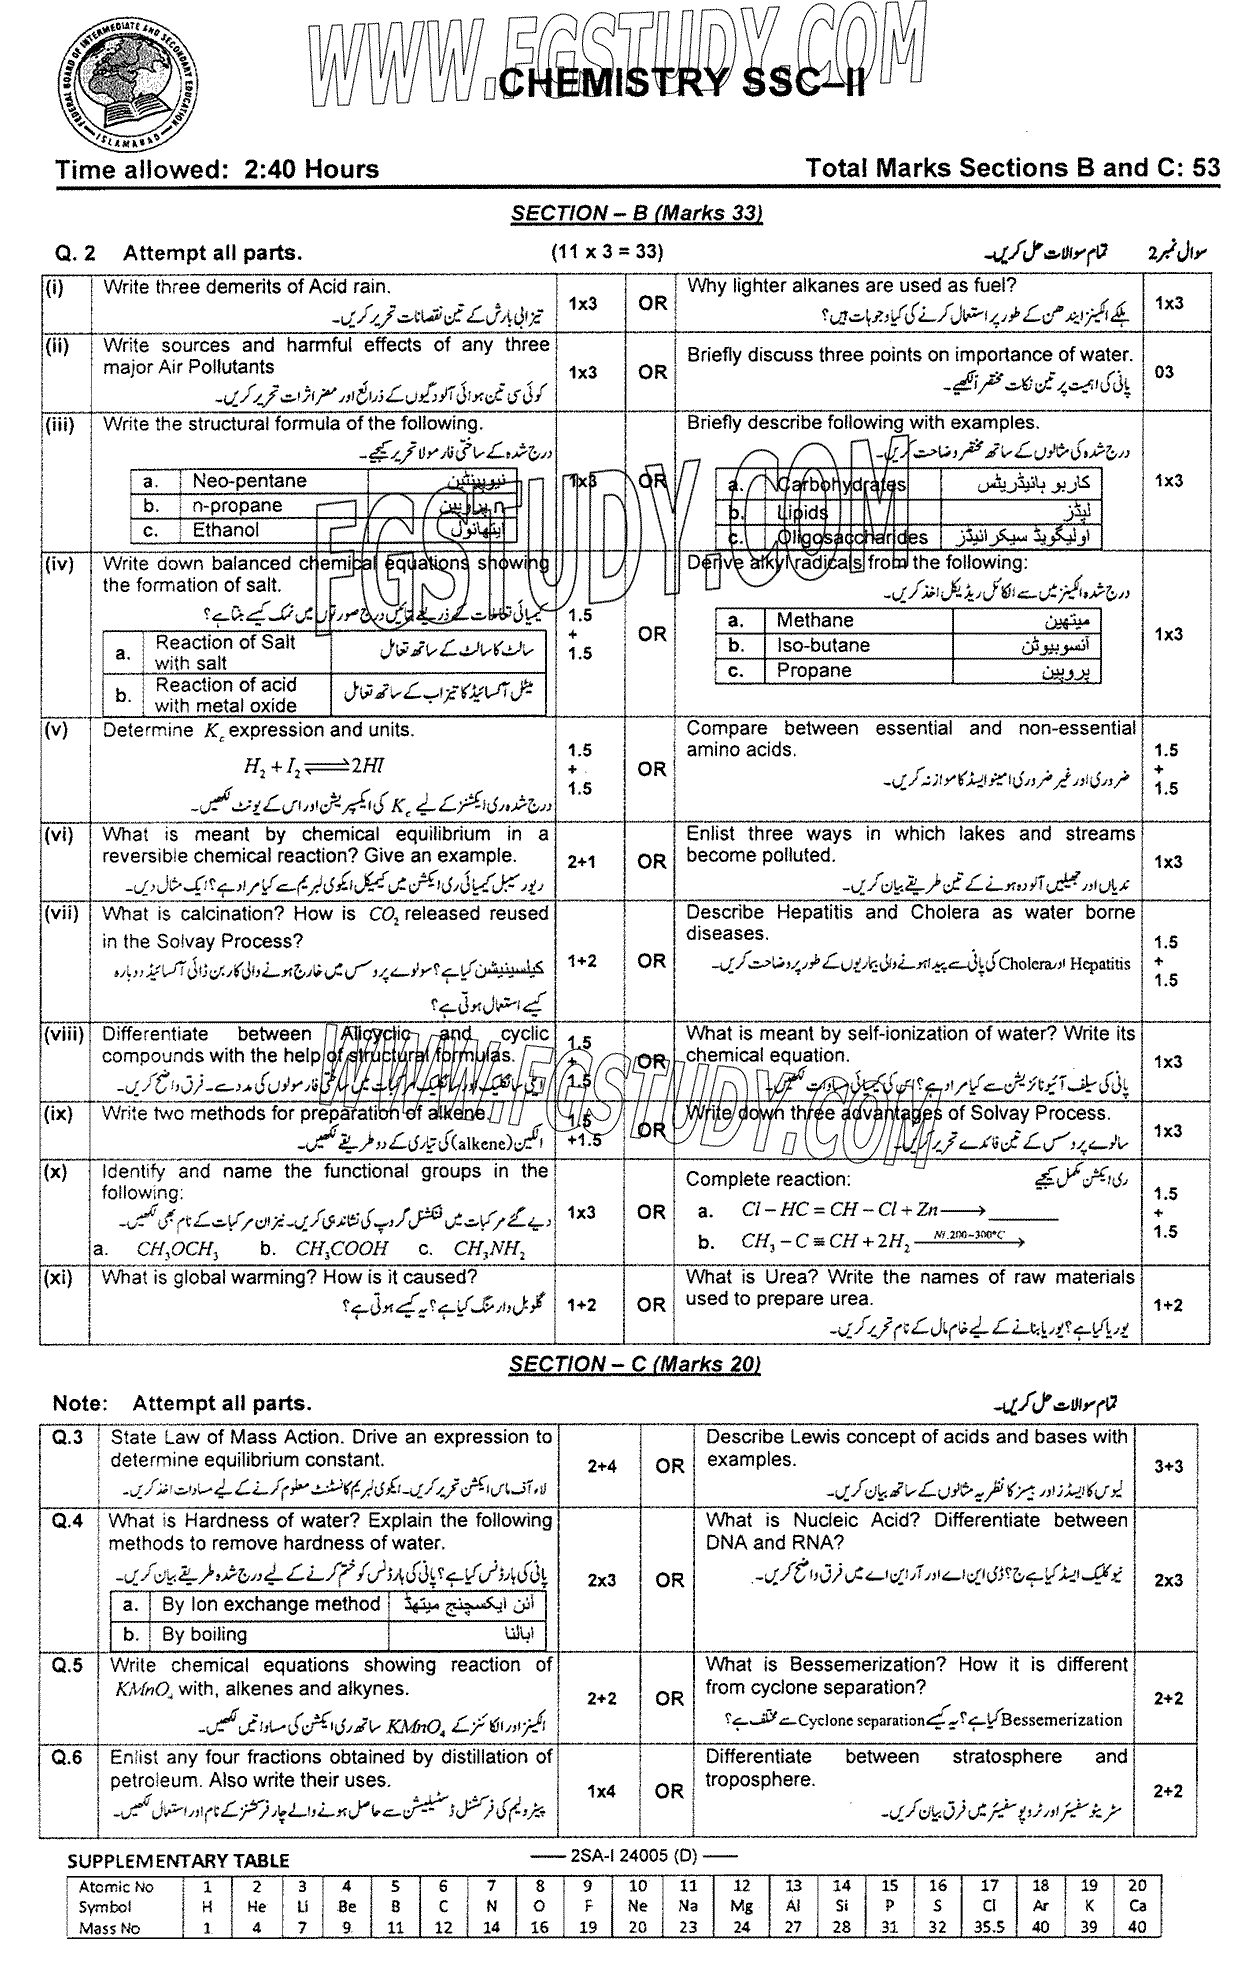 WWW.FGSTUDY.COM
FEDERAL BOARD OF INTERMEDIATE AND SECONDARY EDUCATION
ISLAMABAD
CHEMISTRY SSC–II
Time allowed: 2:40 Hours
Total Marks Sections B and C: 53
SECTION – B (Marks 33)
Q. 2 Attempt all parts. (11 x 3 = 33) تمام سوالات حل کریں۔ سوال نمبر 2
(i) Write three demerits of Acid rain.
تیزابی بارش کے تین نقصانات تحریر کریں۔
1x3
OR
Why lighter alkanes are used as fuel?
ہلکے الکینز ایندھن کے طور پر استعمال کرنے کی کیا وجوہات ہیں؟
1x3
(ii) Write sources and harmful effects of any three
major Air Pollutants
کوئی سی تین ہوائی آلودگیوں کے ذرائع اور مضر اثرات تحریر کریں۔
1x3
OR
Briefly discuss three points on importance of water.
پانی کی اہمیت پر تین نکات مختصراً لکھیے۔
03
(iii) Write the structural formula of the following.
درج شدہ کے ساختی فارمولا تحریر کیجیے۔
a. Neo-pentane نیوپینٹین
b. n-propane n پروپین
c. Ethanol ایتھانول
1x3
OR
Briefly describe following with examples.
درج شدہ کی مثالوں کے ساتھ مختصر وضاحت کریں۔
a. Carbohydrates کاربو ہائیڈریٹس
b. Lipids لپڈز
c. Oligosaccharides اولیگوڈ سیکرائیڈز
1x3
FGSTUDY.COM
(iv) Write down balanced chemical equations showing
the formation of salt.
کیمیائی تعاملات کے ذریعے بتائیں درج صورتوں میں نمک کیسے بنتا ہے؟
a. Reaction of Salt
with salt سالٹ کا سالٹ کے ساتھ تعامل
b. Reaction of acid
with metal oxide میٹل آکسائیڈ کا تیزاب کے ساتھ تعامل
1.5
+
1.5
OR
Derive alkyl radicals from the following:
درج شدہ الکینز میں سے الکائل ریڈیکل اخذ کریں۔
a. Methane میتھین
b. Iso-butane آئسوبیوٹن
c. Propane پروپین
1x3
(v) Determine K_c expression and units.
H₂ + I₂ ⇌ 2HI
درج شدہ ری ایکشنز کے لیے K_c کی ایکسپریشن اور اس کے یونٹ لکھیں۔
1.5
+
1.5
OR
Compare between essential and non-essential
amino acids.
ضروری اور غیر ضروری امینو ایسڈ کا موازنہ کریں۔
1.5
+
1.5
(vi) What is meant by chemical equilibrium in a
reversible chemical reaction? Give an example.
ریورسیبل کیمیائی ری ایکشن میں کیمیکل ایکوی لبریم سے کیا مراد ہے؟ ایک مثال دیں۔
2+1
OR
Enlist three ways in which lakes and streams
become polluted.
ندیاں اور جھیلیں آلودہ ہونے کے تین طریقے بیان کریں۔
1x3
(vii) What is calcination? How is CO₂ released reused
in the Solvay Process?
کیلسینیشن کیا ہے؟ سولوے پروسس میں خارج ہونے والی کاربن ڈائی آکسائیڈ دوبارہ
کیسے استعمال ہوتی ہے؟
1+2
OR
Describe Hepatitis and Cholera as water borne
diseases.
Hepatitis اور Cholera کی پانی سے پیدا ہونے والی بیماریوں کے طور پر وضاحت کریں۔
1.5
+
1.5
(viii) Differentiate between Alicyclic and cyclic
compounds with the help of structural formulas.
ایلی سائکلیک اور سائکلیک مرکبات میں ساختی فارمولوں کی مدد سے فرق واضح کریں۔
1.5
+
1.5
OR
What is meant by self-ionization of water? Write its
chemical equation.
پانی کی سیلف آئیونائزیشن سے کیا مراد ہے؟ اس کی کیمیائی مساوات لکھیں۔
1x3
WWW.FGSTUDY.COM
(ix) Write two methods for preparation of alkene.
الکین (alkene) کی تیاری کے دو طریقے لکھیں۔
1.5
+1.5
OR
Write down three advantages of Solvay Process.
سالوے پروسس کے تین فائدے تحریر کریں۔
1x3
(x) Identify and name the functional groups in the
following:
دیے گئے مرکبات میں فنکشنل گروپ کی نشاندہی کریں۔ نیز ان مرکبات کے نام بھی لکھیں۔
a. CH₃OCH₃ b. CH₃COOH c. CH₃NH₂
1x3
OR
Complete reaction: ری ایکشن مکمل کیجیے
a. Cl – HC = CH – Cl + Zn ⟶ ______
b. CH₃ – C ≡ CH + 2H₂ —Ni,200–300°C→
1.5
+
1.5
(xi) What is global warming? How is it caused?
گلوبل وارمنگ کیا ہے؟ یہ کیسے ہوتی ہے؟
1+2
OR
What is Urea? Write the names of raw materials
used to prepare urea.
یوریا کیا ہے؟ یوریا بنانے کے لیے خام مال کے نام تحریر کریں۔
1+2
SECTION – C (Marks 20)
Note: Attempt all parts. تمام سوالات حل کریں۔
Q.3 State Law of Mass Action. Drive an expression to
determine equilibrium constant.
لاء آف ماس ایکشن تحریر کریں۔ ایکوی لبریم کانسٹنٹ معلوم کرنے کے لیے مساوات اخذ کریں۔
2+4
OR
Describe Lewis concept of acids and bases with
examples.
لیوس کا ایسڈز اور بیسز کا نظریہ مثالوں کے ساتھ بیان کریں۔
3+3
Q.4 What is Hardness of water? Explain the following
methods to remove hardness of water.
پانی کی ہارڈنس کیا ہے؟ پانی کی ہارڈنس کو ختم کرنے کے لیے درج شدہ طریقے بیان کریں۔
a. By Ion exchange method آئن ایکسچنج میتھڈ
b. By boiling ابالنا
2x3
OR
What is Nucleic Acid? Differentiate between
DNA and RNA?
نیوکلیک ایسڈ کیا ہے ج؟ ڈی این اے اور آر این اے میں فرق واضح کریں۔
2x3
Q.5 Write chemical equations showing reaction of
KMnO₄ with, alkenes and alkynes.
الکینز اور الکائنز کے KMnO₄ ساتھ ری ایکشن کی مساواتیں لکھیں۔
2+2
OR
What is Bessemerization? How it is different
from cyclone separation?
Bessemerization کیا ہے؟ یہ کیسے Cyclone separation سے مختلف ہے؟
2+2
Q.6 Enlist any four fractions obtained by distillation of
petroleum. Also write their uses.
پیٹرولیم کی فرکشنل ڈسٹیلیشن سے حاصل ہونے والے چار فرکشنز کے نام اور استعمال لکھیں۔
1x4
OR
Differentiate between stratosphere and
troposphere.
سٹریٹوسفیئر اور ٹروپوسفیئر میں فرق بیان کریں۔
2+2
—— 2SA-I 24005 (D) ——
SUPPLEMENTARY TABLE
Atomic No 1 2 3 4 5 6 7 8 9 10 11 12 13 14 15 16 17 18 19 20
Symbol H He Li Be B C N O F Ne Na Mg Al Si P S Cl Ar K Ca
Mass No 1 4 7 9 11 12 14 16 19 20 23 24 27 28 31 32 35.5 40 39 40